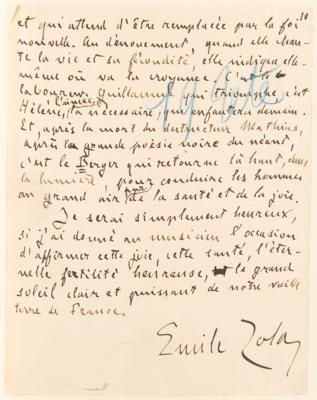 10
et qui attend d'être remplacée par la foi
nouvelle. Au dénouement, quand elle chan-
te la vie et sa fécondité, elle indique elle-
même où va la croyance. C'est le
laboureur Guillaume qui triomphe, c'est
Hélène, l'aimée, la nécessaire, qui enfantera demain.
Et, après la mort du destructeur Mathias,
après la grande poésie noire du néant,
c'est le Berger qui retourne là-haut, dans
la lumière, pour conduire les hommes
au grand air pur de la santé et de la joie.
Je serai simplement heureux,
si j'ai donné au musicien l'occasion
d'affirmer cette joie, cette santé, l'éter-
nelle fertilité heureuse, la grand
soleil clair et puissant de notre vieille
terre de France.
Emile Zola